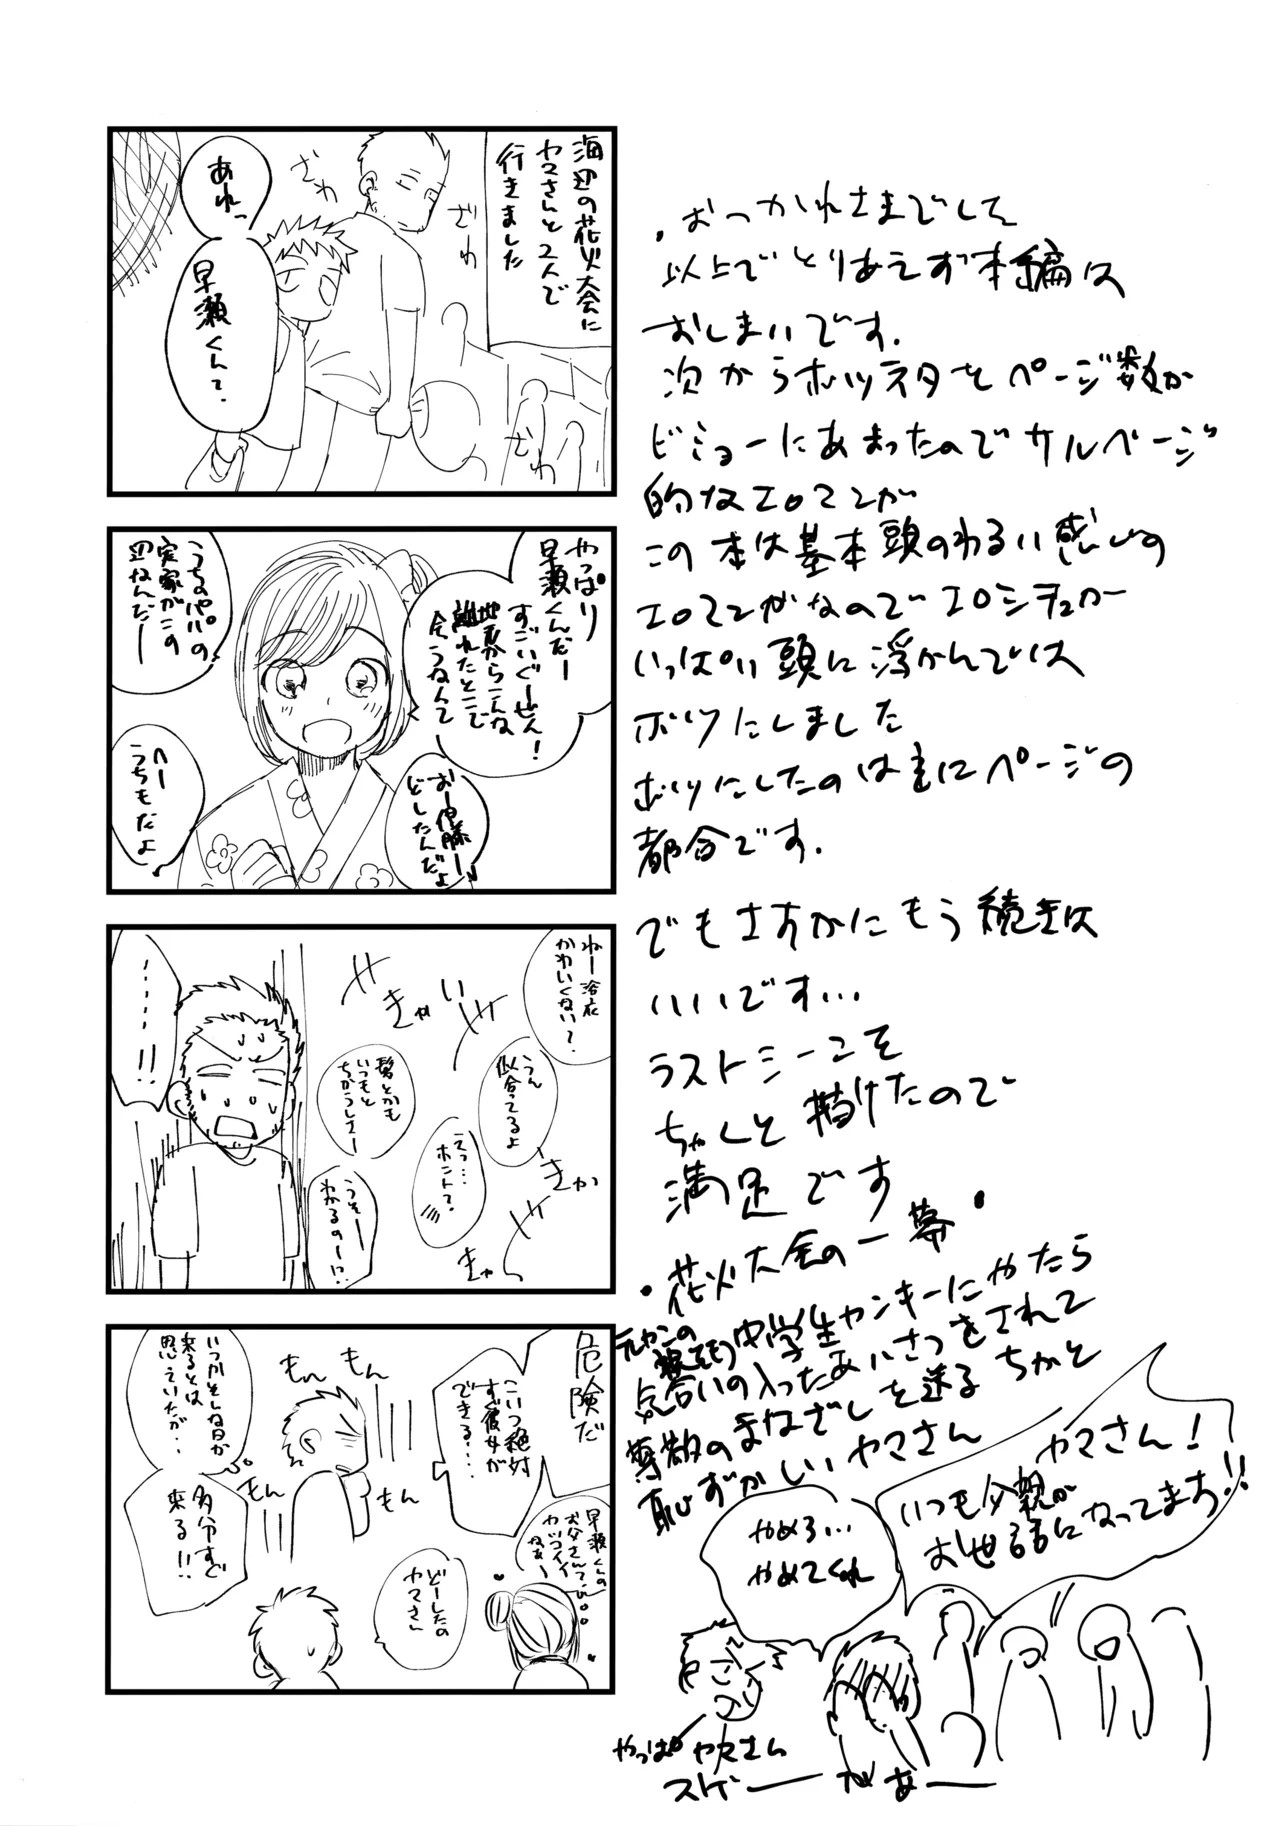 海辺の花火大会に
ヤマさんと2人で
行きました
ざわ
ざわ
ざわ
あれっ
早瀬くんて、
やっぱり
早瀬くんだー
すごいぐーぜん!
地元からこんな
離れたとこで
会うなんて
おー伊藤ー
どしたんだよ
うちのパパの
実家がこの
辺なんだー
へー
うちもだよ
ねー浴衣
かわいくない?
うん
似合ってるよ
えっ…
ホント?
髪とかも
いつもと
ちがうしさー
うそー
わかるのー!?
きゃ
い
きゃ
きゃ
……!!
危険だ
こいつ絶対
すぐ彼女が
できる…
早瀬くんの
お父さんてば
カッコイイ
なぁー
どーしたの
ヤマさん
もん
もん
もん
もん
いつかそんな日が
来るとは
思っていたが…
多分すぐ
来る!!
・おつかれさまでした
以上でとりあえず本編は
おしまいです.
次からボツネタをページ数が
ビミョーにあまったのでサルベージ
的なエロマンが
この本は基本頭のわるい感じの
エロマンがなのでエロシチュが
いっぱい頭に浮かんでは
ボツにしました
ボツにしたのは主にページの
都合です.
でもさすがにもう続きは
いいです…
ラストシーンを
ちゃんと描けたので
満足です
・花火大会の一幕・
元ヤンの親をもつ中学生ヤンキーにやたら
気合いの入ったあいさつをされて
尊敬のまなざしを送るちかと
恥ずかしいヤマさん
ヤマさん!
いつも父親が
お世話になってます!!
やめろ…
やめてくれ
やっぱヤマさん
スゲーなあー